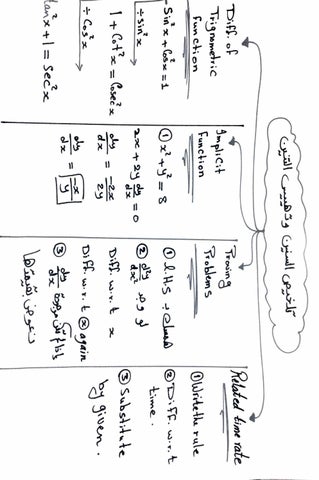 تلخيص السنين وتهييس التنين
Diff. of
Trignometric
function
-Sin²x + Cos²x = 1
÷ Sin²x
1 + Cot²x = Cosec²x
÷ Cos²x
tan²x + 1 = Sec²x
Implicit
Function
① x² + y² = 8
2x + 2y dy/dx = 0
dy/dx = -2x/2y
dy/dx = -x/y
Proving
Problems
① L.H.S همسك بـ
② d²y/dx² لو وجد
Diff. w.r.t x
Diff. w.r.t ⓧ again
③ dy/dx
نعوض بقيمتها
Related time rate
① Write the rule
② Diff. w.r.t
time.
③ Substitute
by given.